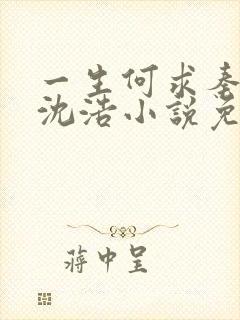 一生何求
沈浩小說免
蔣中呈